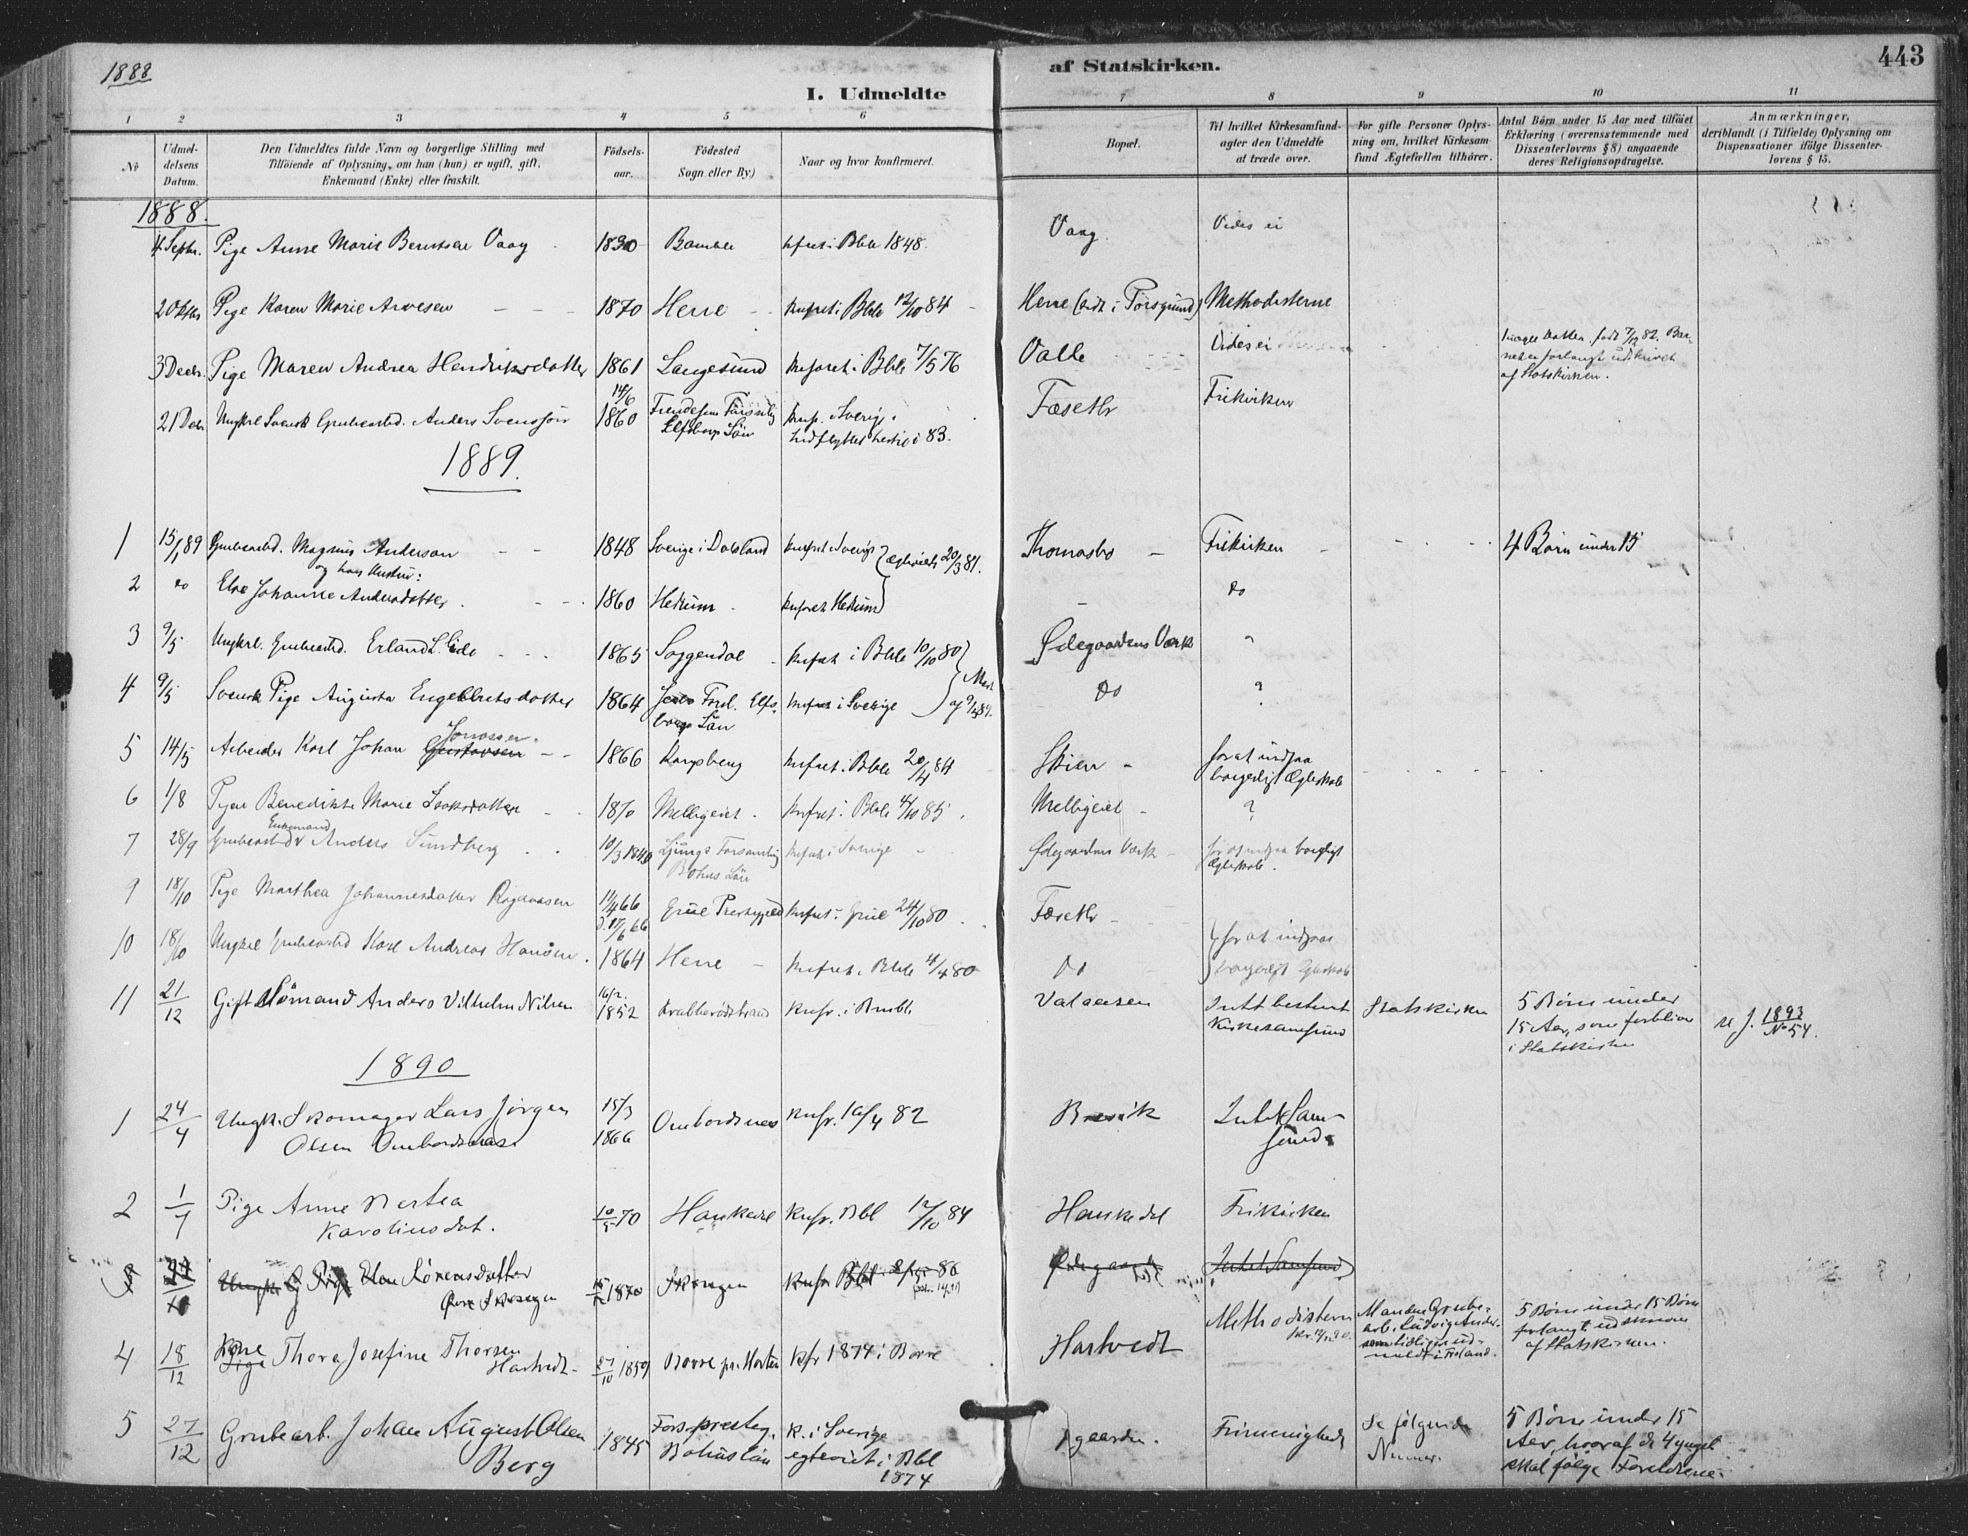 1888
I. Udmeldte
af Statskirken.
443
1 2 3 4 5 6 7 8 9 10 11
No
Udmel-
delsens
Datum.
Den Udmeldtes fulde Navn og borgerlige Stilling med
Tilföiende af Oplysning, om han (hun) er ugift, gift,
Enkemand (Enke) eller fraskilt.
Födsels-
aar.
Födested
Sogn eller By)
Naar og hvor konfirmeret.
Bopæl.
Til hvilket Kirkesamfund-
agter den Udmeldte
at træde over.
For gifte Personer Oplys-
ning om, hvilket Kirkesam-
fund Ægtefællen tilhörer.
Antal Börn under 15 Aar med tilföiet
Erklæring (overensstemmende med
Dissenterlovens § 8) angaaende
deres Religionsopdragelse.
Anmærkninger,
deriblandt (i Tilfælde) Oplysning om
Dispensationer ifölge Dissenter-
lovens § 15.
1888.
4 Septr. Pige Anne Marie Berntsen Vaag 1830 Bamble i Bble 1848. Vaag. Vides ei
2 Oktbr Pige Karen Marie Arvesen 1870 Herre i Bble 12/10 84 Herre ( i Porsgrund) Methodisterne
3 Decbr. Pige Maren Andrea Hendriksdatter 1861 Langesund i Bble 7/5 76 Valle Vides ei
af Statskirken.
21 Decbr Ungkrl Svensk Grubearbd. Anders Svensson 14/6 1860 Elfsborgs Län Sverige
i 83. Fæseth Frikirken
1889.
1 15/1 89 Grubearbd. Magnus Anderson 1848 Sverige i Dalsland Sverige Thomasbo Frikirken 4 Børn under 15
og hans Hustru:
2 do Else Johanne Andersdatter 1860 Hedrum Hedrum do
3 9/5 Ungkrl. Grubearbd. Erland L. Eide 1865 Soggendal i Bble 10/10 80 Ødegaardens Værk "
4 9/5 Svensk Pige Augusta Engelbretsdatter 1864 Elfs-
borgs Län i Sverige do ?
5 14/5 Arbeider Karl Johan Gustavsen Jonassen 1866 Kongsberg i Bble 20/4 84 Skien for at indgaa
borgerligt Ægteskab
6 1/8 Pigen Benedikte Marie Isaksdatter 1870 Melbygeiet i Bble 4/10 85 Melbygeiet ?
7 28/9 Grubearbeider Enkemand Anders Sundberg 10/3 1840 Ljungs Forsamling
Bohus Län i Sverige Ødegaardens Værk for at indgaa borgerligt
Ægteskab.
9 18/10 Pige Marthea Johannesdatter 11/4 66 Grue Præstegjeld Grue 24/10 80 Fæseth
10 18/10 Ungkrl Grubearbd Karl Andreas Hansen 1864 Herre i Bble 4/4 80 do for at indgaa
borgerligt Ægteskab
11 21/12 Gift Sømand Anders Vilhelm Nilsen 16/2. 1852 Krabberødstrand Konfr. i Bamble Valaasen Intet bestemt
Kirkesamfund Statskirken 5 Børn under
15 Aar, som forblive
i Statskirken se J. 1893 No 54.
1890
1 24/4 Ungk. Skomager Lars Jørgen
Olsen Ombordsnes 15/3 1866 Ombordsnes Knfr. 16/4 82 Brevik Intet Sam-
fund
2 1/7 Pige Anne Nertea
Karolinusdat. 10/5 70 Haukedal Knfr. Bbl 12/10 84 Haukedal Frikirken
3 Pige Elen Sørensdatter
Skougen 1870 Skougen Knfr Bbl Intet Samfund
4 18/12 Kone Thora Josefine Thorsen
Hartvedt 27/10 1859 Borre pr. Horten Kfr 1874 i Borre Hartvedt Methodistern Manden Grube-
arb. Ludvig Ander.
som tidligere ud-
meldt 5 Børn under 15 Aar
forlangt udskrevne
af Statskirken.
5 27/12 Grubearb. Johan August Olsen
Berg 1845 Forspresteg.
Bohuslän K. i Sverige
egteviet i Bbl
1874 Frimenighed Se følgende
Nummer. 5 Børn under 15
Aar, hvoraf de 4 yngst
skal følge Forældrene.